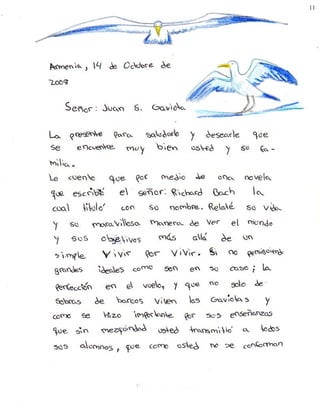 11
Armenia, 14 de Octubre de
2008
Señor: Juan S. Gaviota
La presente para saludarle y desearle que
se encuentre muy bien usted y su fa-
milia.
Le cuento que por medio de una novela
que escribió el señor: Richard Bach la
cual tituló con su nombre. Relaté su vida
y su maravillosa manera de ver el mundo
y sus objetivos más allá de un
simple vivir por vivir. Si no persiguiendo
grandes ideales como son en su caso; la
perfección en el vuelo, y que no solo de
sobras de barcos viven las Gaviotas y
como se hizo importante por sus enseñanzas
que sin mezquindad usted transmitió a todos
sus alumnos, que como usted no se conforman